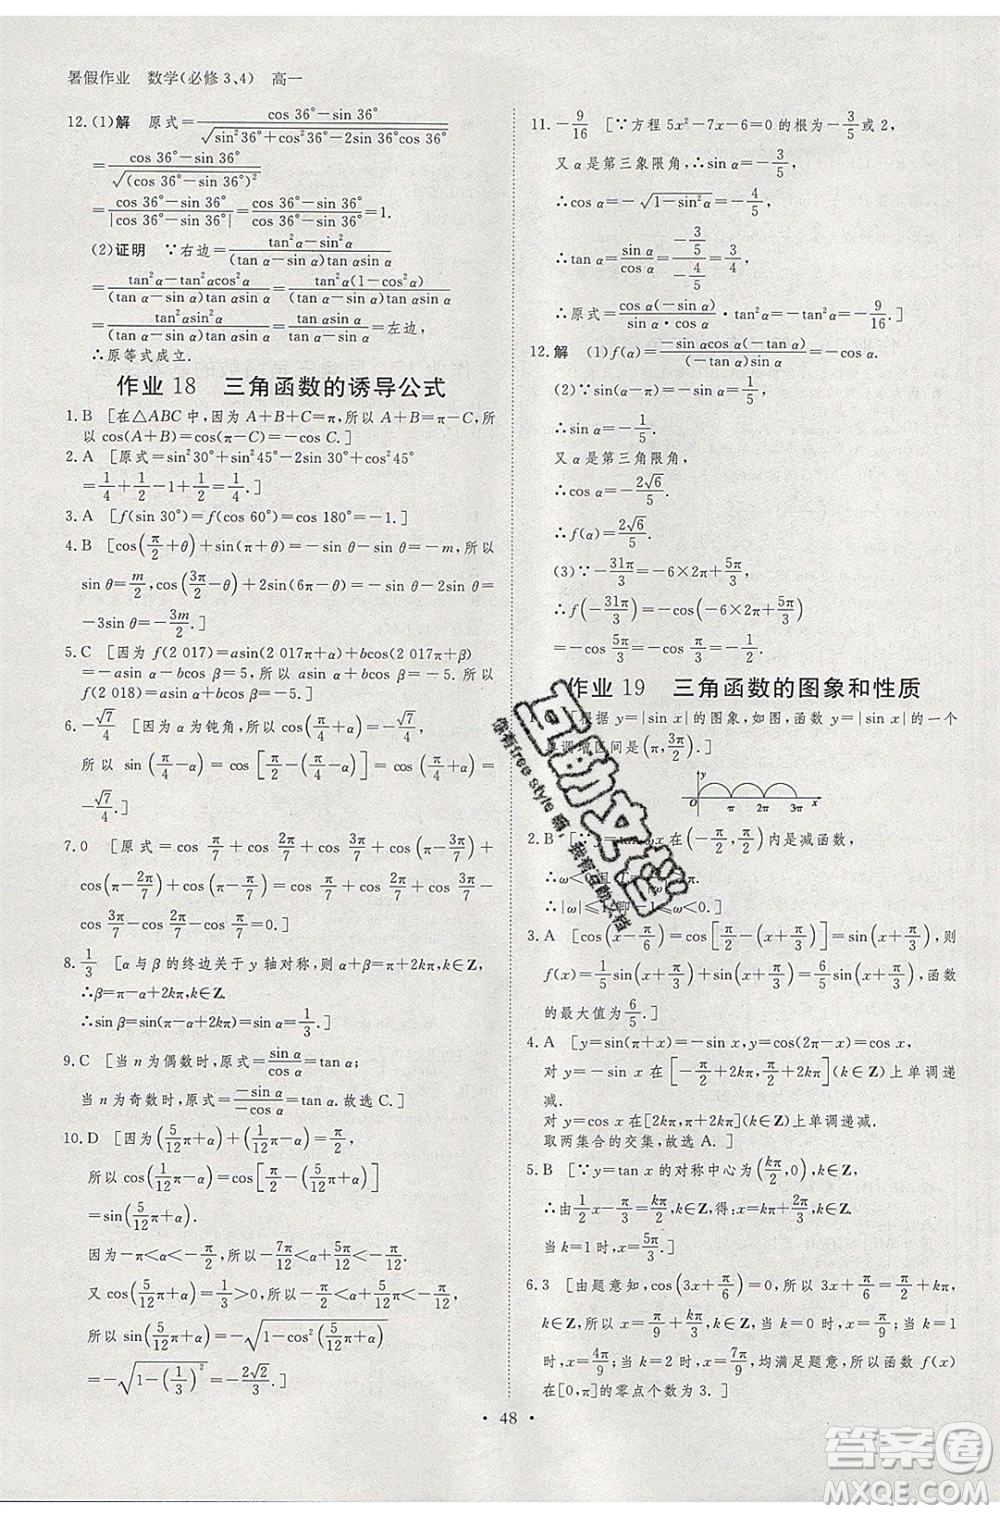 暑假作业 数学(必修3、4) 高一
12.(1)解 原式=(cos 36°-sin 36°)/√(sin²36°+cos²36°-2sin 36°cos 36°)
=(cos 36°-sin 36°)/√((cos 36°-sin 36°)²)
=(cos 36°-sin 36°)/|cos 36°-sin 36°|=(cos 36°-sin 36°)/(cos 36°-sin 36°)=1.
(2)证明 ∵右边=(tan²α-sin²α)/((tan α-sin α)tan αsin α)
=(tan²α-tan²αcos²α)/((tan α-sin α)tan αsin α)=(tan²α(1-cos²α))/((tan α-sin α)tan αsin α)
=(tan²αsin²α)/((tan α-sin α)tan αsin α)=(tan αsin α)/(tan α-sin α)=左边,
∴原等式成立.
作业 18 三角函数的诱导公式
1.B [在△ABC中,因为A+B+C=π,所以A+B=π-C,所
以cos(A+B)=cos(π-C)=-cos C.]
2.A [原式=sin²30°+sin²45°-2sin 30°+cos²45°
=1/4+1/2-1+1/2=1/4.]
3.A [f(sin 30°)=f(cos 60°)=cos 180°=-1.]
4.B [cos(π/2+θ)+sin(π+θ)=-sin θ-sin θ=-m,所以
sin θ=m/2,cos(3π/2-θ)+2sin(6π-θ)=-sin θ-2sin θ=
-3sin θ=-3m/2.]
5.C [因为f(2 017)=asin(2 017π+α)+bcos(2 017π+β)
=-asin α-bcos β=5,所以asin α+bcos β=-5,所以
f(2 018)=asin α+bcos β=-5.]
6.-√7/4 [因为α为钝角,sin(π/4+α)=3/4,所以cos(π/4+α)=-√7/4,
所以 sin(π/4-α)=cos[π/2-(π/4-α)]=cos(π/4+α)=
-√7/4.]
7.0 [原式=cos π/7+cos 2π/7+cos 3π/7+cos(π-3π/7)
+cos(π-2π/7)+cos(π-π/7)=cos π/7+cos 2π/7+
cos 3π/7-cos 3π/7-cos 2π/7-cos π/7=0.]
8.1/3 [α与β的终边关于y轴对称,则α+β=π+2kπ,k∈Z,
∴β=π-α+2kπ,k∈Z.
∴sin β=sin(π-α+2kπ)=sin α=1/3.]
9.C [当n为偶数时,原式=sin α/cos α=tan α;
当n为奇数时,原式=-sin α/-cos α=tan α.故选C.]
10.D [因为(5/12π+α)+(π/12-α)=π/2,
所以cos(π/12-α)=cos[π/2-(5/12π+α)]
=sin(5/12π+α).
因为-π<α<-π/2,所以-7π/12<α+5/12π<-π/12.
又cos(5/12π+α)=1/3>0,所以-π/2<α+5/12π<-π/12,
所以sin(5/12π+α)=-√(1-cos²(5/12π+α))
=-√(1-(1/3)²)=-2√2/3.]
11.-9/16 [∵方程5x²-7x-6=0的根为-3/5或2,
又α是第三象限角,∴sin α=-3/5,
∴cos α=-√(1-sin²α)=-4/5,
∴tan α=sin α/cos α=(-3/5)/(-4/5)=3/4,
∴原式=cos α(-cos α)/(sin α·sin α)·tan²α=-tan²α=-9/16.]
12.解 (1)f(α)=-sin αcos α(-tan α)/((-tan α)sin α)
=-cos α.
∴sin α=-1/5.
又α是第三角限角,
∴cos α=-2√6/5.
∴f(α)=2√6/5.
(3)∵-31π/3=-6×2π+5π/3,
∴f(-31π/3)=-cos(-6×2π+5π/3)
=-cos 5π/3=-cos π/3=-1/2.
作业 19 三角函数的图象和性质
[根据y=|sin x|的图象,如图,函数y=|sin x|的一个
单调增区间是(π,3π/2).]
y O π 2π 3π x
2.B 在(-π/2,π/2)内是减函数,
∴|ω|≤1,即-1≤ω<0.]
3.A [cos(x-π/6)=cos[π/2-(x+π/3)]=sin(x+π/3),则
f(x)=1/5sin(x+π/3)+sin(x+π/3)=6/5sin(x+π/3),函数
的最大值为6/5.]
4.A [因为y=cos(x+π/2)=-sin x,y=cos x,
对y=-sin x在[-π/2+2kπ,π/2+2kπ](k∈Z)上单调递
减.
对y=cos x在[2kπ,π+2kπ](k∈Z)上单调递减.
取两集合的交集,故选A.]
5.B [∵y=tan x的对称中心为(kπ/2,0),k∈Z,
∴令1/2x-π/6=kπ/2,k∈Z,得x=kπ+π/3,k∈Z.
当k=1时,x=5π/3.]
6.3 [由题意知,cos(3x+π/6)=0,所以3x+π/6=π/2+kπ,
k∈Z,所以x=π/9+kπ/3,k∈Z,当k=0时,x=π/9;当k=1
时,x=4π/9;当k=2时,x=7π/9,均满足题意,所以函数f(x)
在[0,π]的零点个数为3.]
• 48 •
互助文档
你有free style 嘛,我有互助文档
答案圈
MXQE.COM